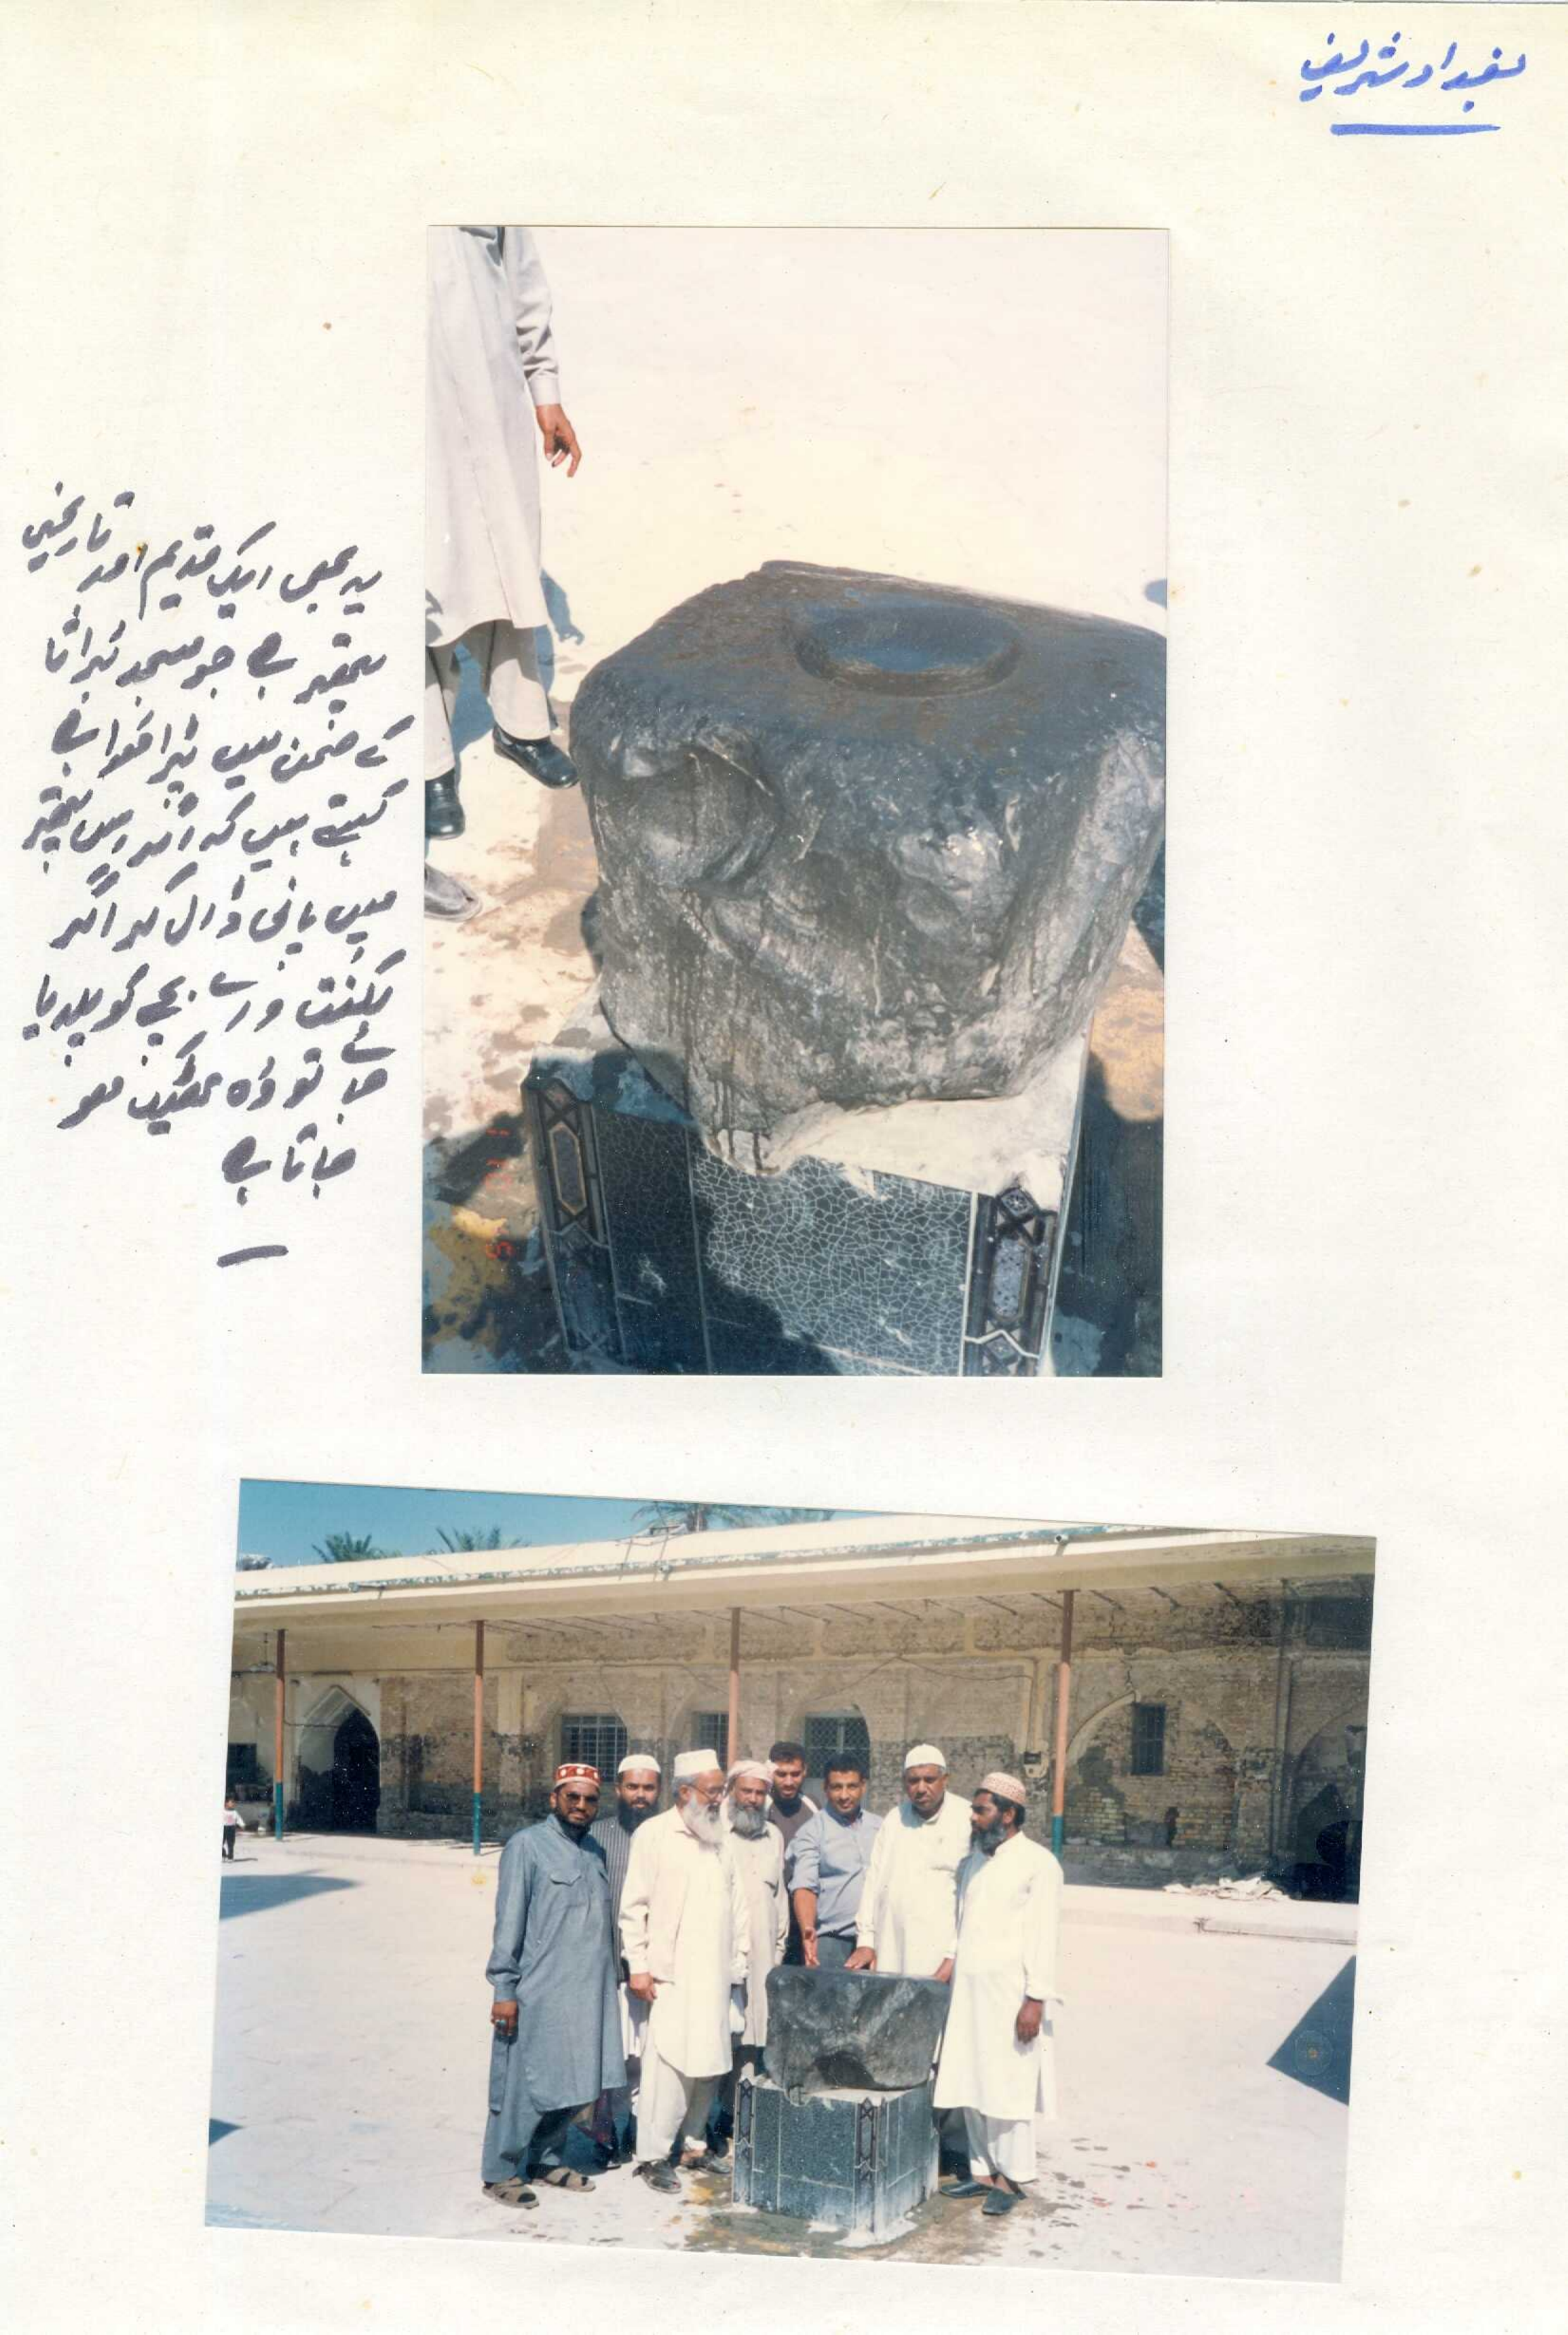 بغداد شریف
یہ بھی ایک قدیم اور تاریخی
پتھر ہے جو مسجد براثا
کے صحن میں پڑا ہوا ہے
کہتے ہیں کہ اگر اس پتھر
میں پانی ڈال کر اگر
لکنت والے بچے کو پلایا
جائے تو وہ ٹھیک ہو
جاتا ہے